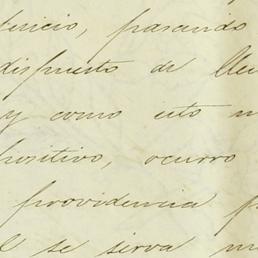 tericio, pasando
dispuesto de
y como esto
positivo, ocurro
providencia
se sirva